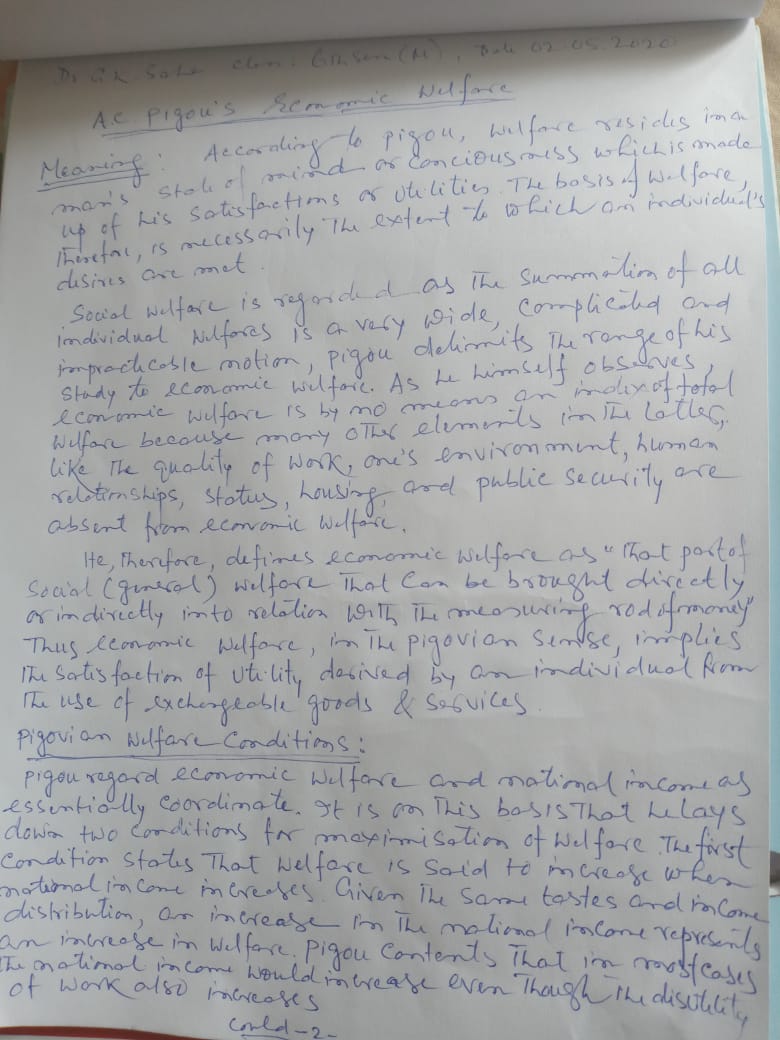 Dr G.K Saha Class: 6th Sem (M), Date 02.05.2020
A.C Pigou's Economic Welfare
Meaning: According to pigou, welfare resides in a
man's state of mind or conciousness which is made
up of his satisfactions or utilities. The basis of welfare,
therefore, is necessarily the extent to which an individual's
desires are met.
Social welfare is regarded as the summation of all
individual welfares is a very wide, complicated and
impracticable notion, pigou delimits the range of his
study to economic welfare. As he himself observes,
economic welfare is by no means an index of total
welfare because many other elements in the latter,
like the quality of work, one's environment, human
relationships, status, housing, and public security are
absent from economic welfare.
He, therefore, defines economic welfare as "That part of
social (general) welfare that can be brought directly
or indirectly into relation with the measuring rod of money"
Thus economic welfare, in the pigovian sense, implies
the satisfaction of utility derived by an individual from
the use of exchangeable goods & services.
Pigovian Welfare Conditions:
Pigou regard economic welfare and national income as
essentially coordinate. It is on this basis that he lays
down two conditions for maximisation of welfare. The first
condition states that welfare is said to increase when
national income increases. Given the same tastes and income
distribution, an increase in the national income represents
an increase in welfare. Pigou contents that in most cases
the national income would increase even though the disutility
of work also increases
contd-2-